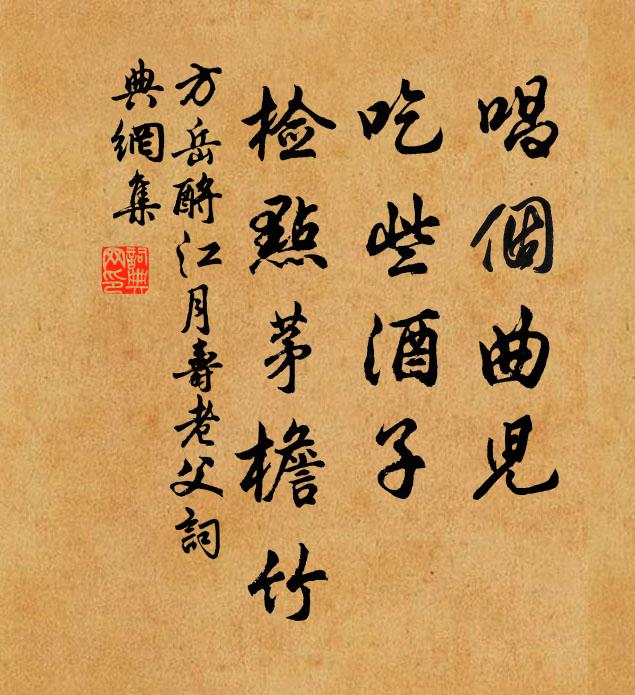 唱個曲兒
吃些酒子
檢點茅檐竹
方岳酹江月壽老父詞
典網集
詞典網印